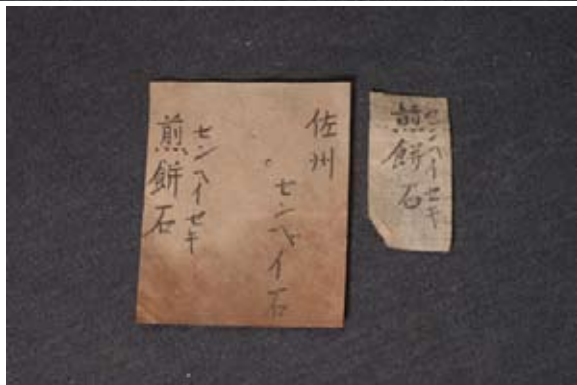 佐州
センヘイ石
センヘイセキ
煎餅石
センヘイセキ
煎餅石